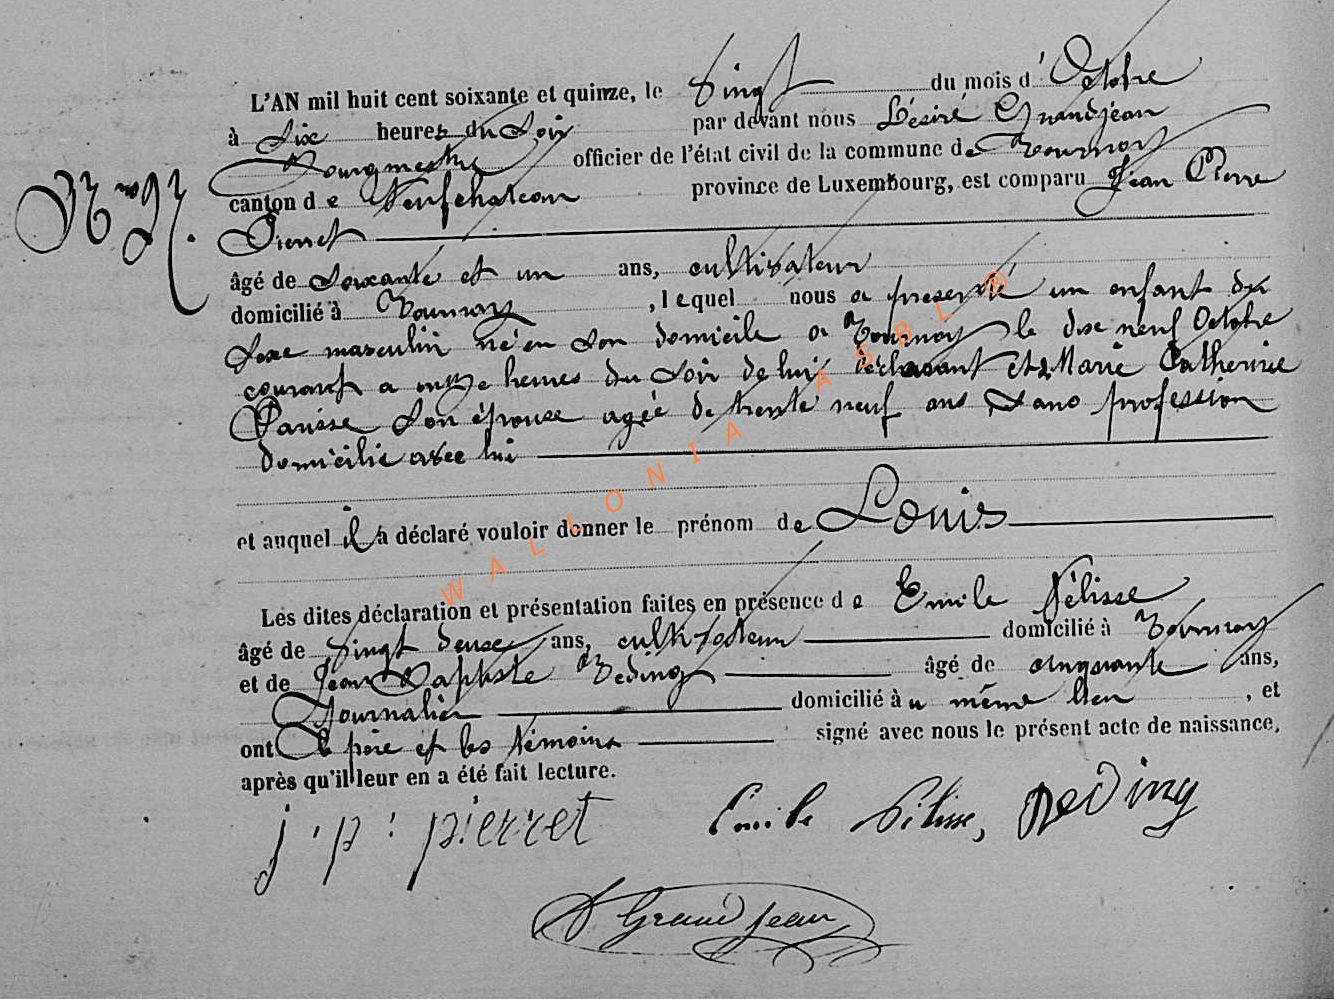 L'AN mil huit cent soixante et quinze, le Vingt du mois d' Octobre
à Six heures du Soir par devant nous Désiré Grandjean
Bourgmestre officier de l'état civil de la commune de Tournay
canton de Neufchateau province de Luxembourg, est comparu Jean Pierre
Pierret
âgé de soixante et un ans, cultivateur
domicilié à Tournay, lequel nous a presenté un enfant du
Sexe masculin né en son domicile a Tournay le dix neuf Octobre
courant a onze heures du soir de lui déclarant et de Marie Catherine
son épouse agée de trente neuf ans sans profession
domicilié avec lui
et auquel il a déclaré vouloir donner le prénom de Louis
Les dites déclaration et présentation faites en présence de Emile Pélisse
âgé de vingt deuxe ans, cultivateur domicilié à Tournay
et de Jean Baptiste Reding âgé de cinquante ans,
Journalier domicilié au même lieu, et
ont le père et les témoins signé avec nous le présent acte de naissance,
après qu'il leur en a été fait lecture.
j. p. pierret Emile Pélisse, Reding
D Grandjean
WALLONIA ASBL ®